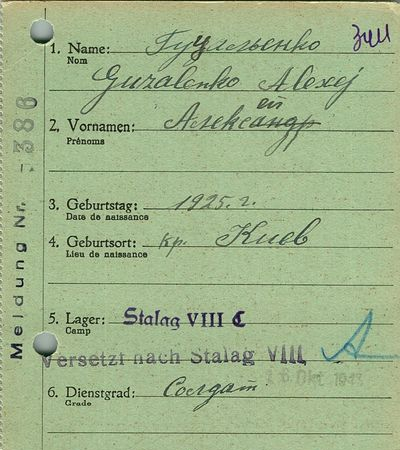 1. Name: Гуцаленко
Nom
Guzalenko Alexej
ей
2. Vornamen: Александр
Prénoms
3. Geburtstag: 1925. г.
Date de naissance
4. Geburtsort: кр. Киев
Lieu de naissance
5. Lager: Stalag VIII C
Camp
Versetzt nach Stalag VIII A
Okt 1943
6. Dienstgrad: Солдат
Grade
Meldung Nr. 386